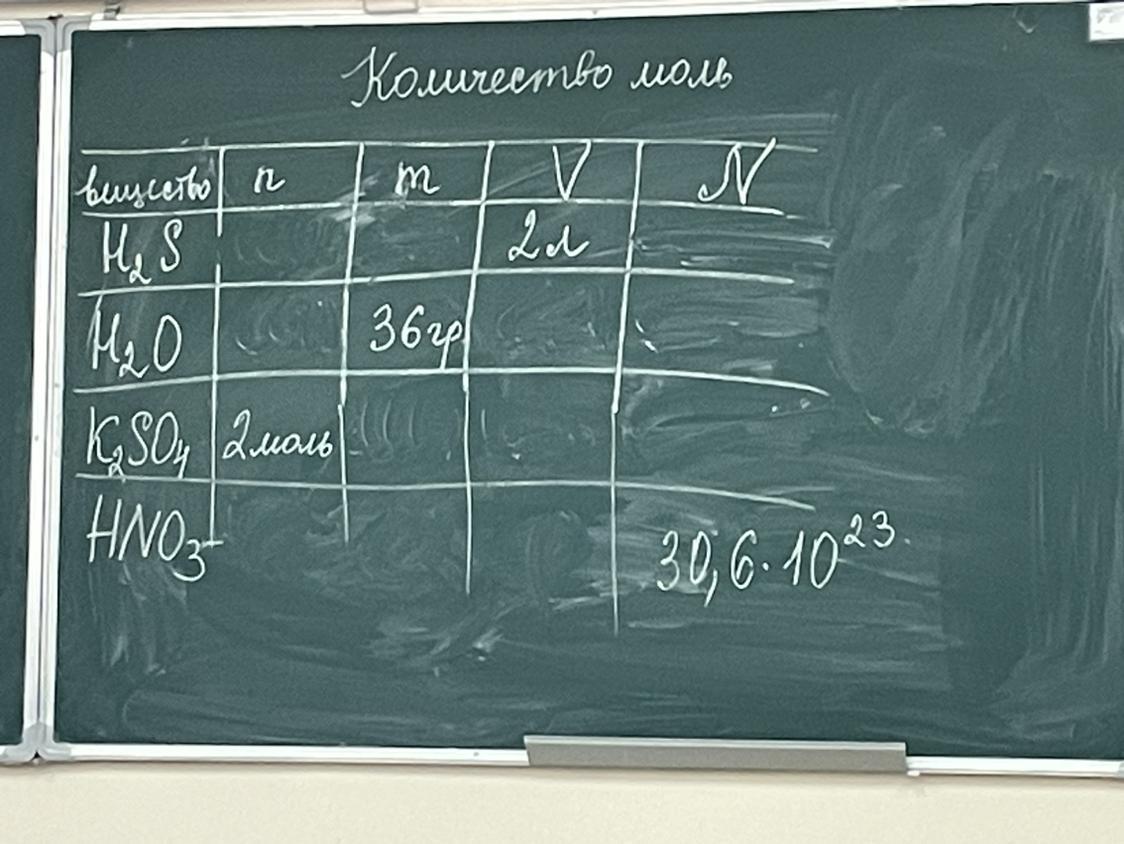 Количество моль
вещество n m V N
H₂S 2л
H₂O 36гр
K₂SO₄ 2моль
HNO₃ 30,6·10²³.